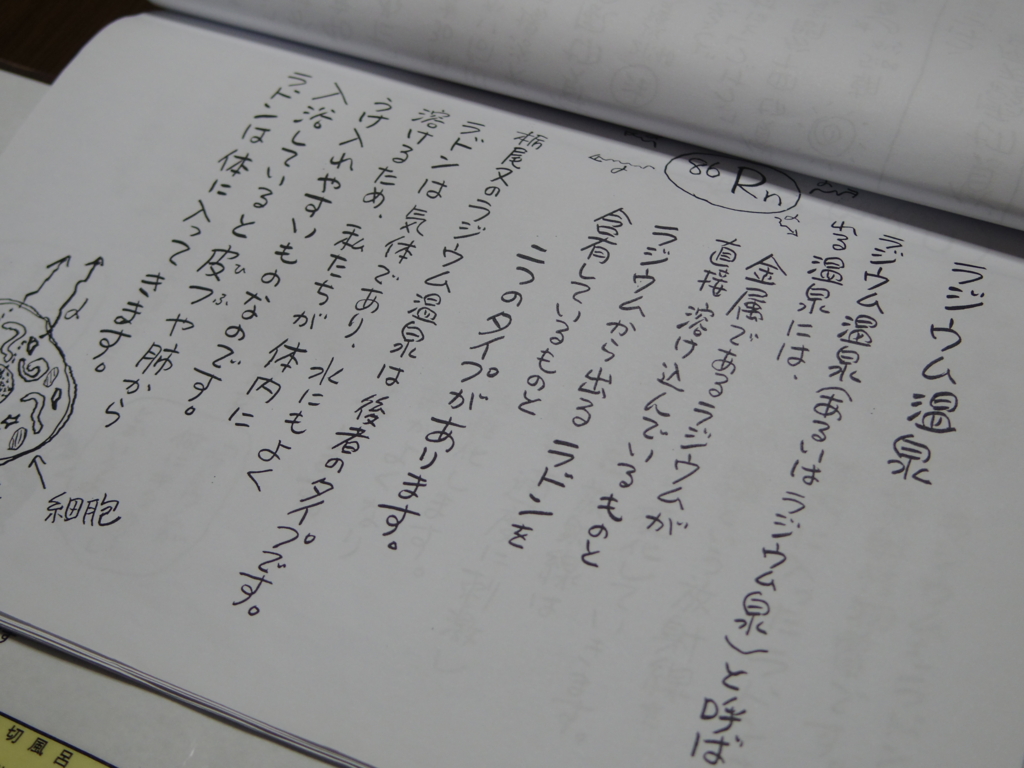 ラジウム温泉
ラジウム温泉(あるいはラジウム泉)と呼ば
よる温泉には、
金属であるラジウムが
直接溶け込んでいるものと
ラジウムから出るラドンを
含有しているものと
二つのタイプがあります。
栃尾又のラジウム温泉は後者のタイプです。
ラドンは気体であり、水にもよく
溶けるため、私たちが体内に
うけ入れやすいものなのです。
入浴していると皮フや肺から
ひふ
ラドンは体に入ってきます。
86 Rn
α
α
細胞
切風呂